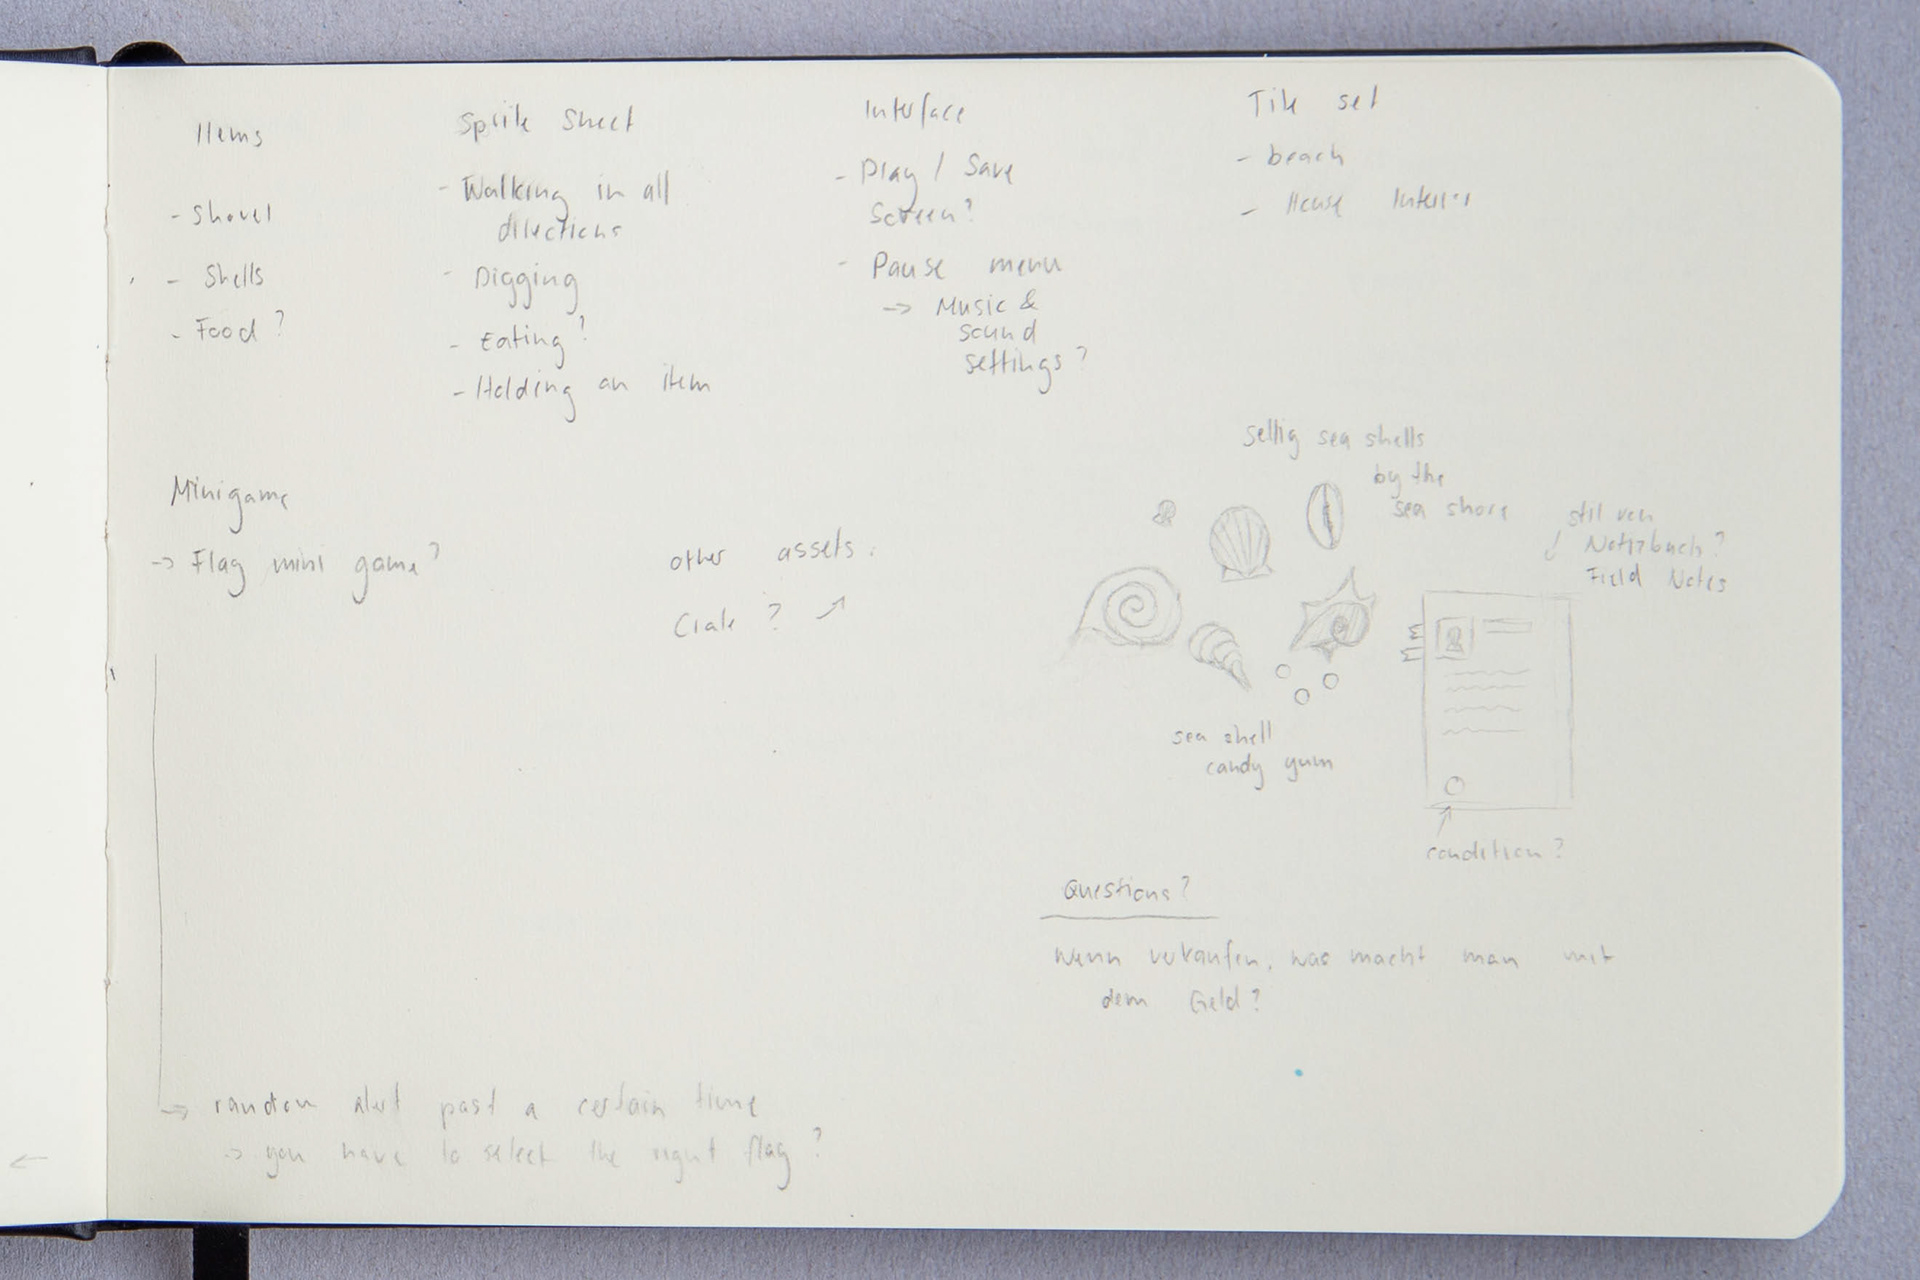 Items
- Shovel
- Shells
- Food?
Sprite Sheet
- Walking in all
directions
- Digging
- Eating?
- Holding an item
Interface
- Play / Save
Screen?
- Pause menu
-> Music &
sound
settings?
Tile set
- beach
- House Interior
Minigame
-> Flag mini game?
other assets:
Crate?
sellig sea shells
by the
sea shore
stil von
Notizbuch?
Field Notes
sea shell
candy gum
condition?
Questions?
wenn verkaufen, was macht man mit
dem Geld?
-> random alert past a certain time
-> you have to select the right flag?